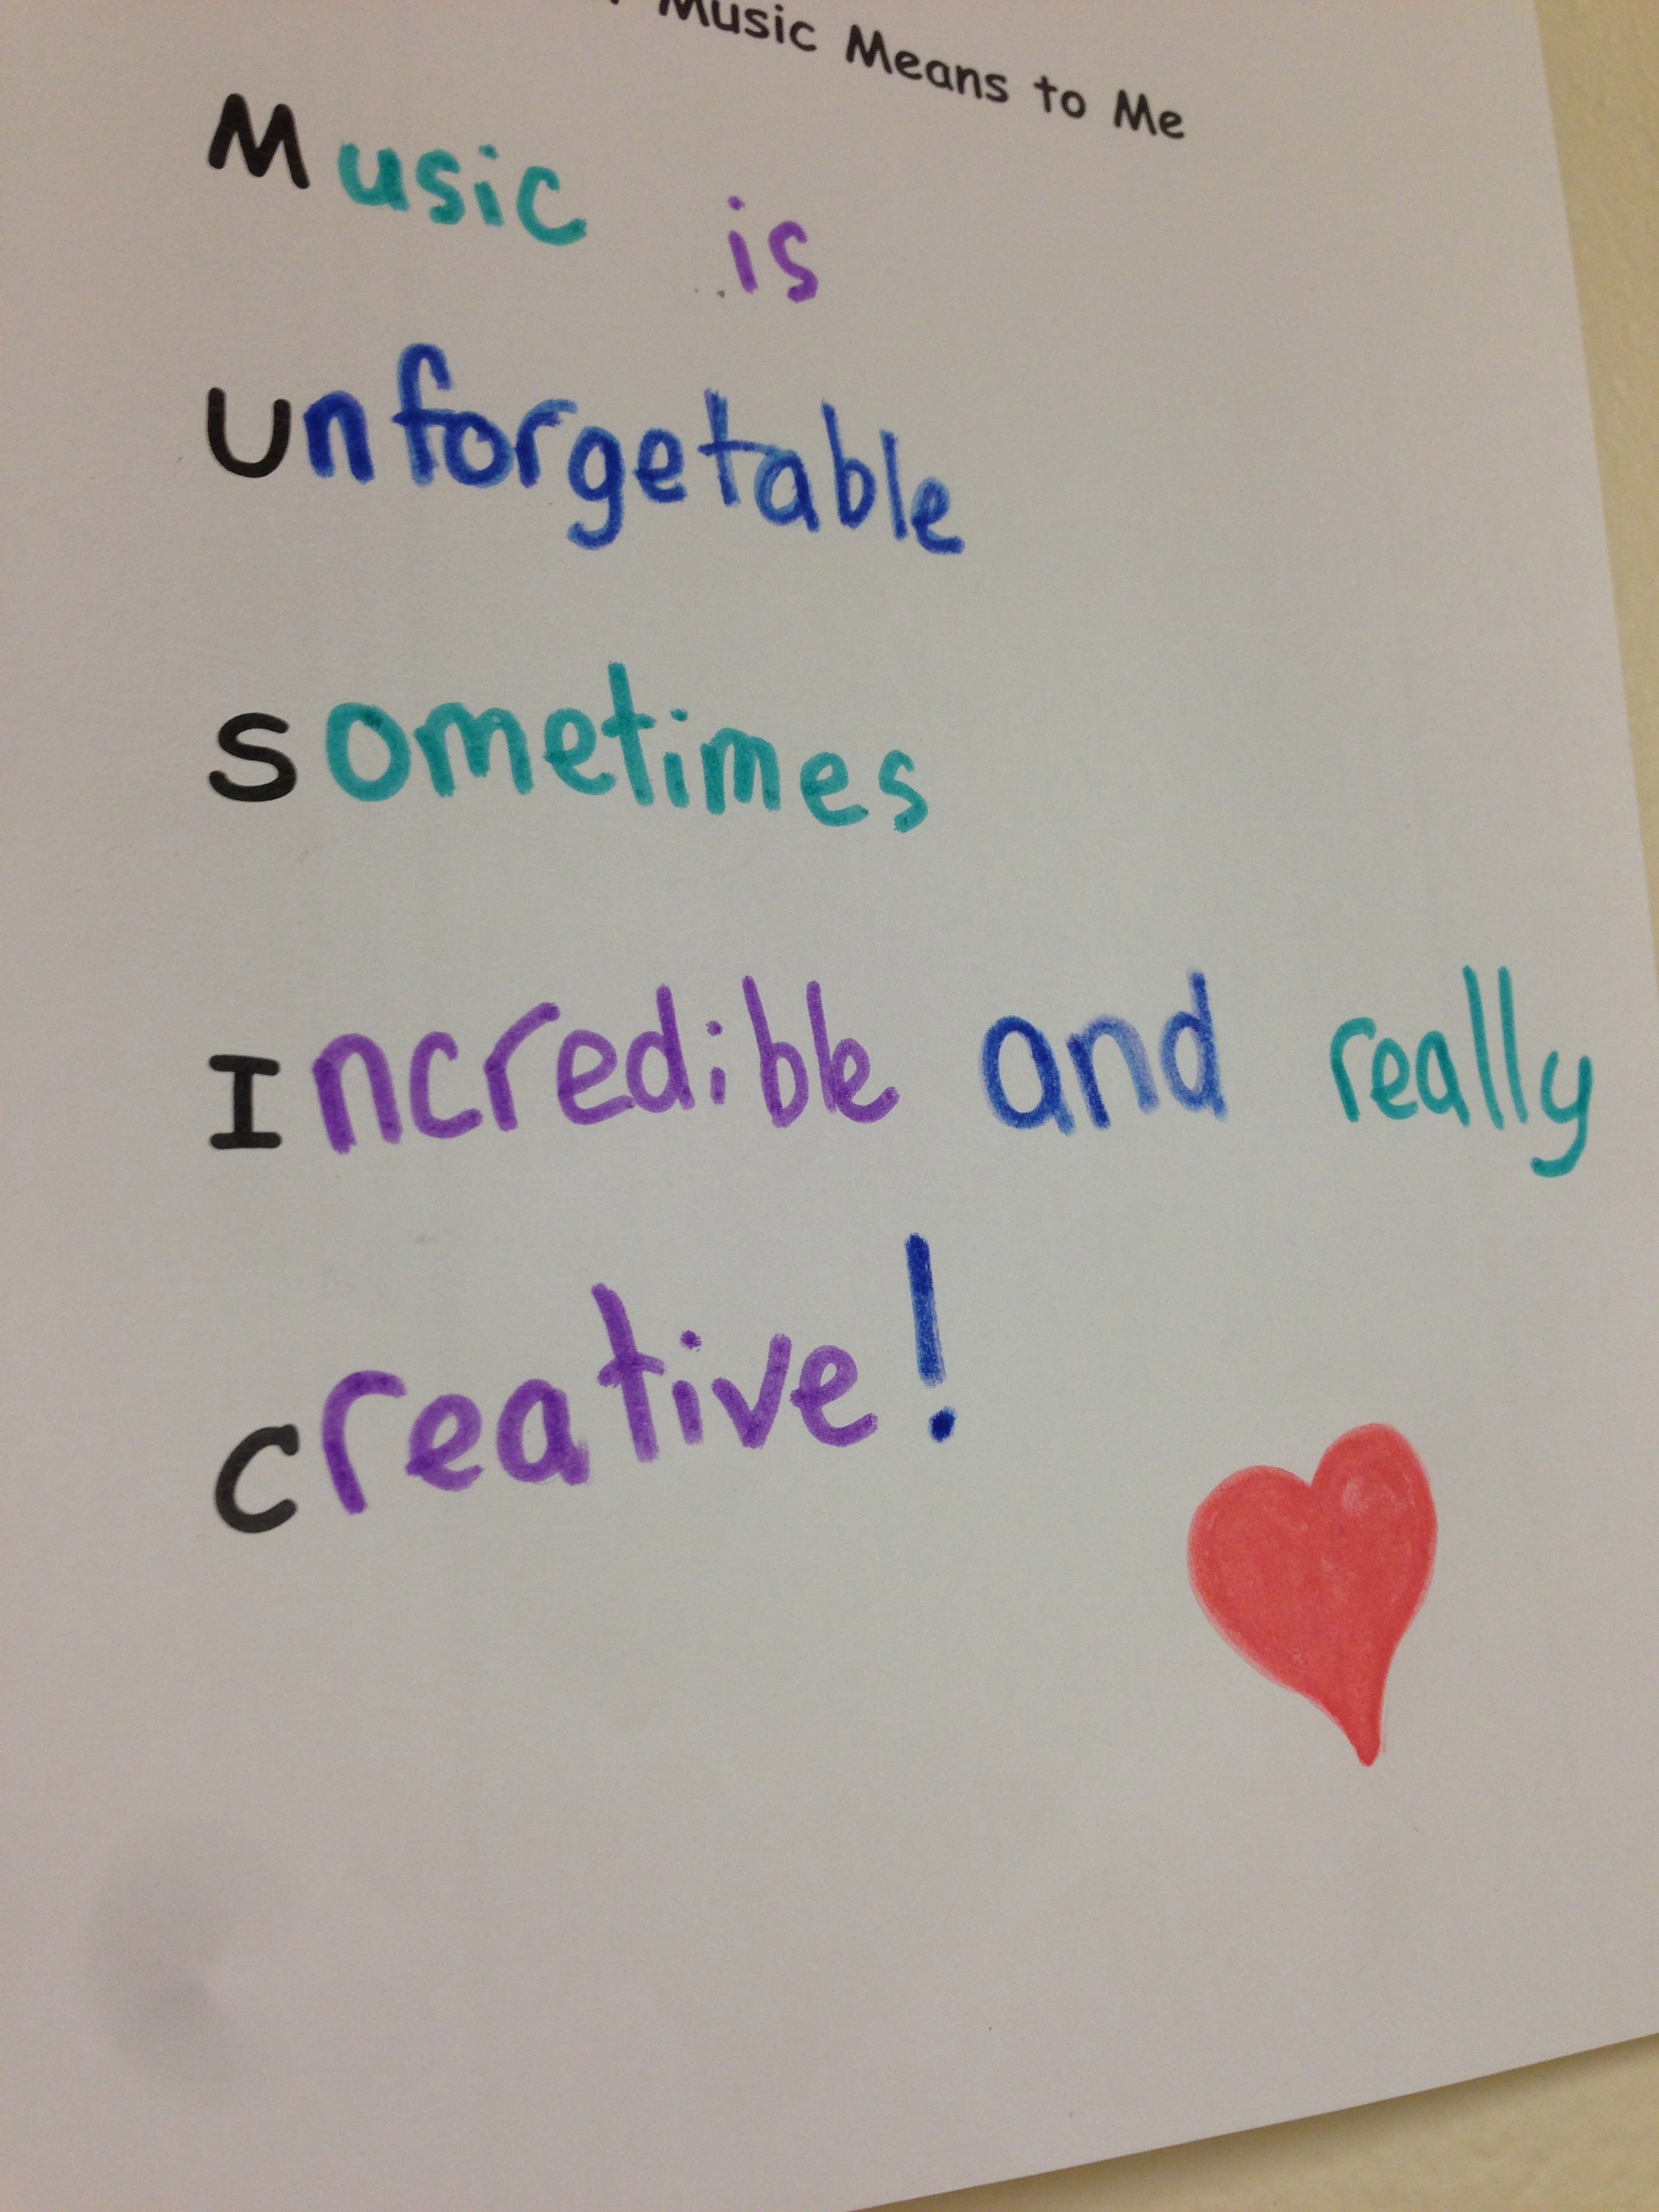 Music Means to Me
Music is
Unforgetable
Sometimes
Incredible and really
creative!